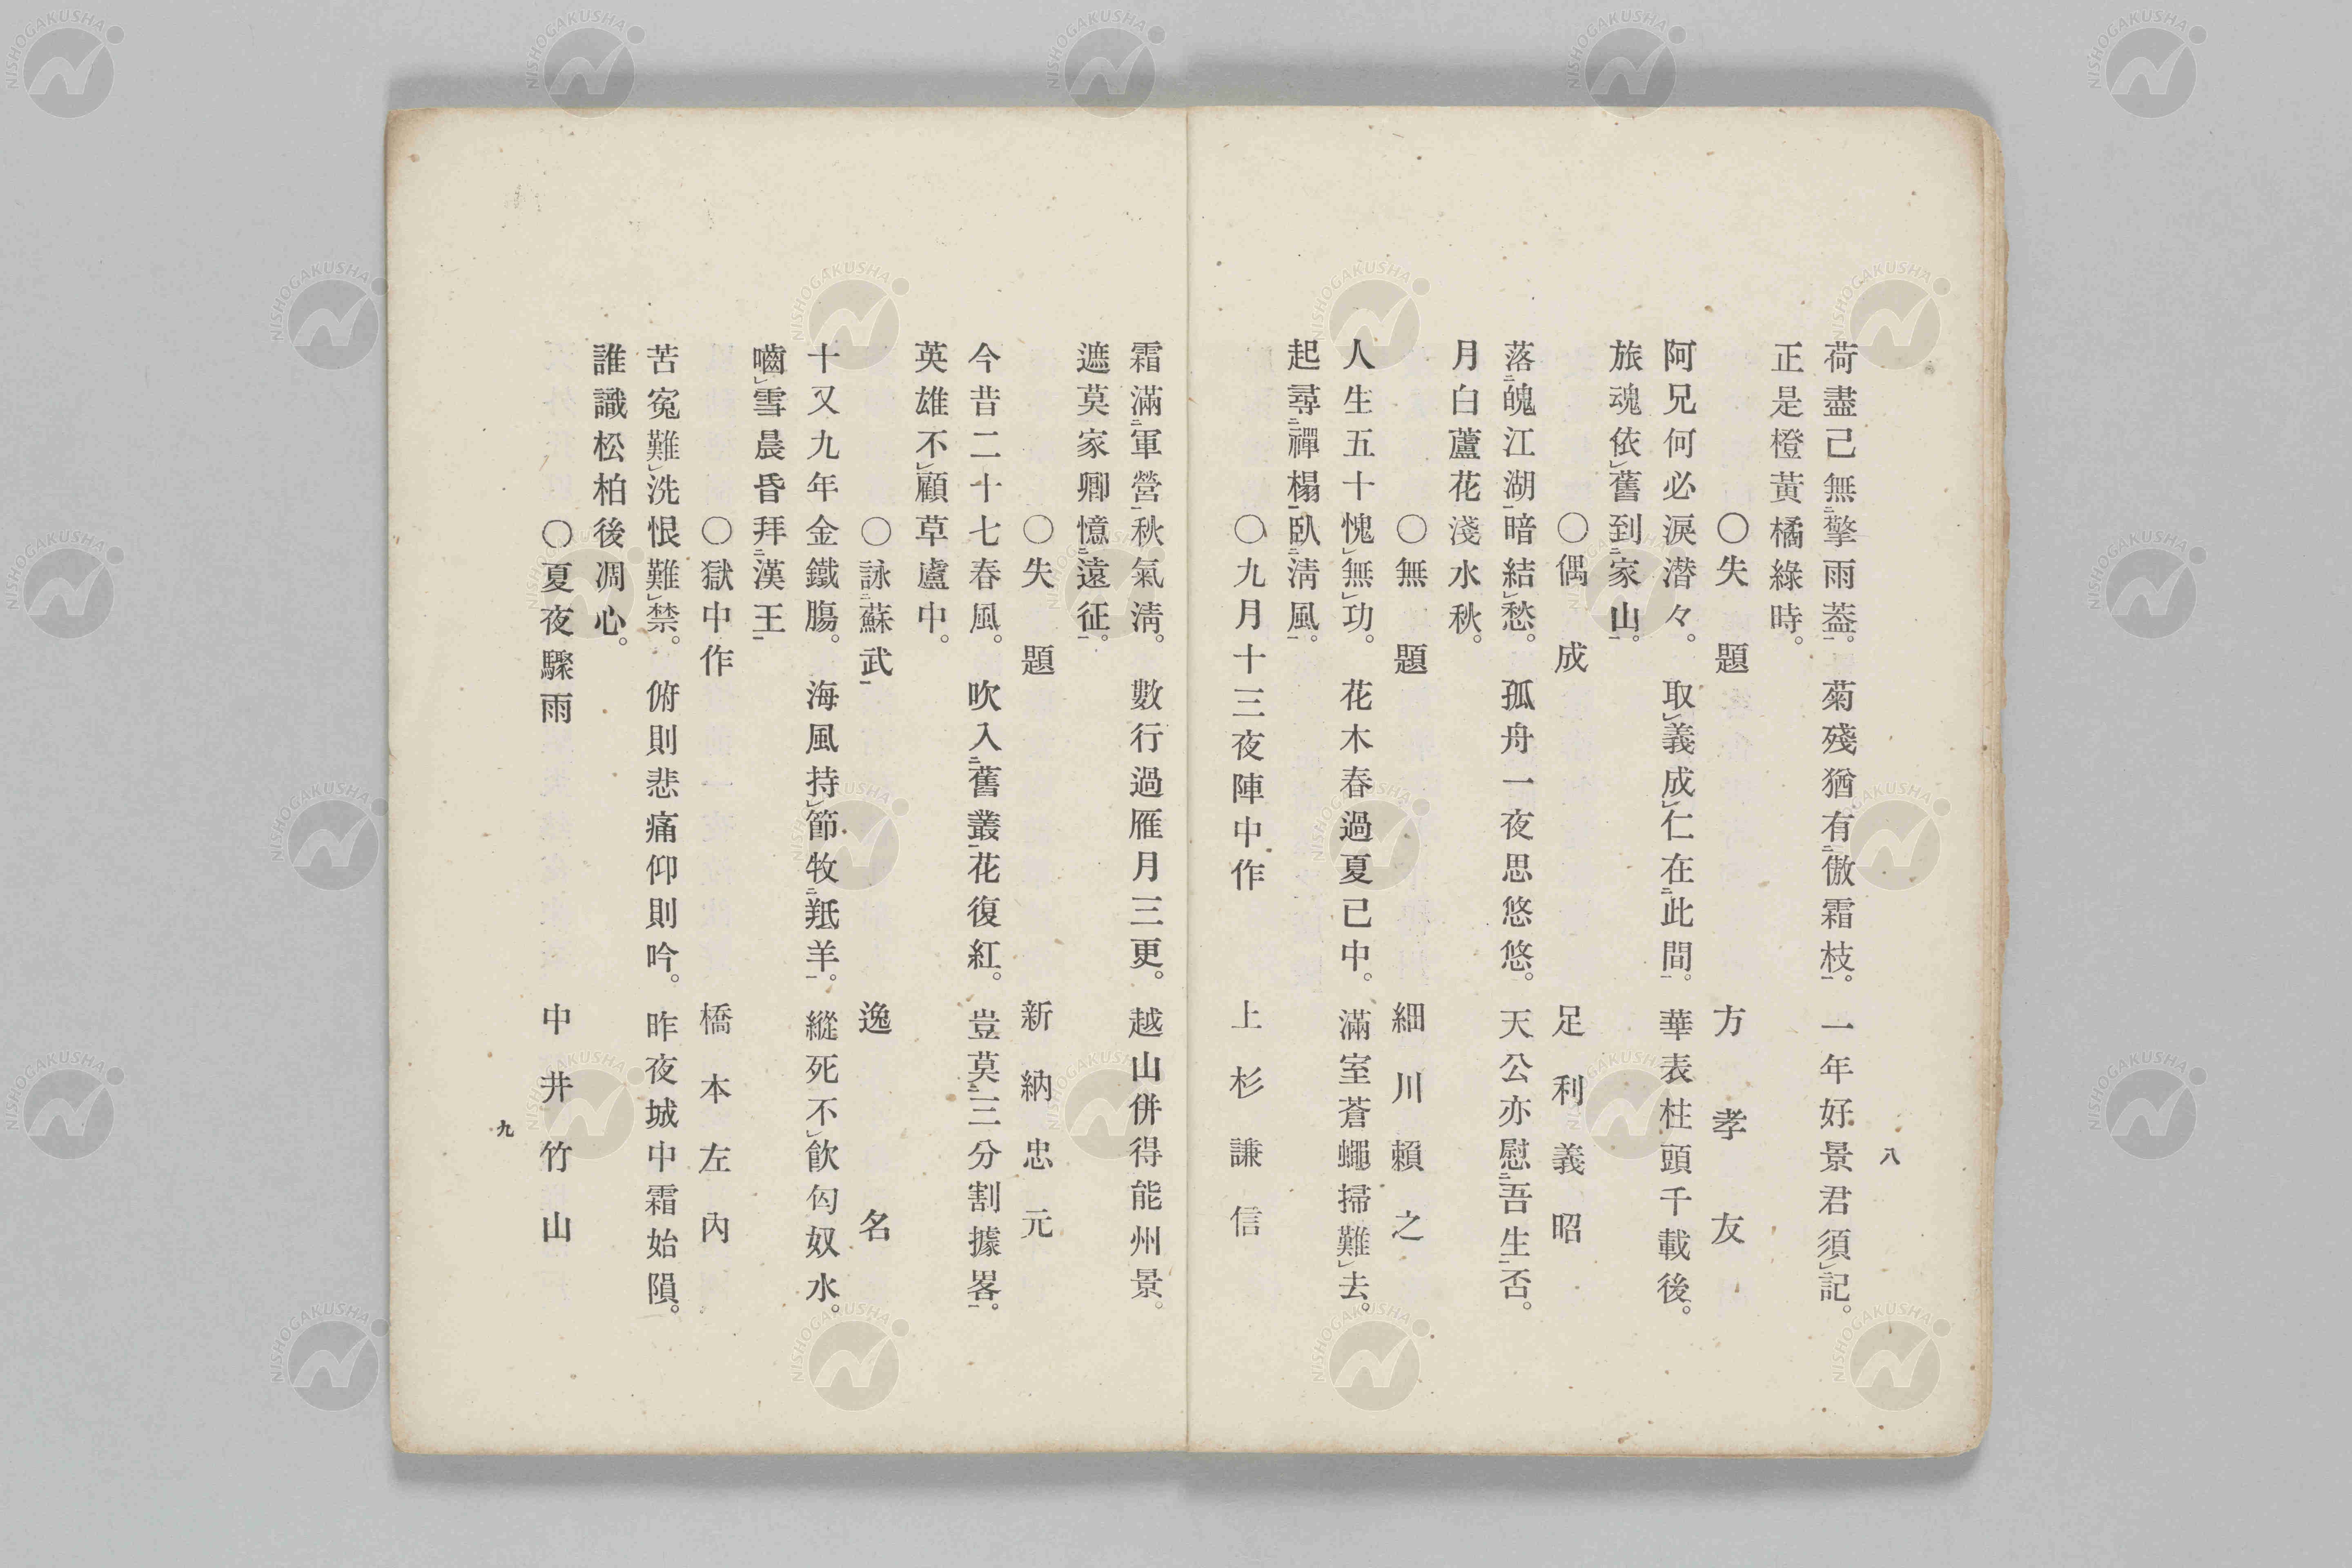 八
荷盡己無㆘擎雨葢㆖。菊殘猶有㆓傲霜枝㆒。一年好景君須㆑記。
正是橙黃橘綠時。
〇失題 方孝友
阿兄何必淚潸々。取㆑義成㆑仁在㆓此間㆒。華表柱頭千載後。
旅魂依㆑舊到㆓家山㆒。
〇偶成 足利義昭
落㆓魄江湖㆒暗結㆑愁。孤舟一夜思悠悠。天公亦慰㆓吾生㆒否。
月白蘆花淺水秋。
〇無題 細川賴之
人生五十愧㆑無㆑功。花木春過夏已中。滿室蒼蠅掃難㆑去。
起尋㆓禪榻㆒臥㆓淸風㆒。
〇九月十三夜陣中作 上杉謙信
霜滿㆓軍營㆒秋氣淸。數行過雁月三更。越山併得能州景。
遮莫家鄕憶㆓遠征㆒。
〇失題 新納忠元
今昔二十七春風。吹入㆓舊叢㆒花復紅。豈莫㆓三分割據畧㆒。
英雄不㆑顧草盧中。
〇詠㆓蘇武㆒ 逸名
十又九年金鐵膓。海風持㆑節牧㆓羝羊㆒。縱死不㆑飮匈奴水。
嚙㆑雪晨昏拜㆓漢王㆒
〇獄中作 橋本左內
苦寃難㆑洗恨難㆑禁。俯則悲痛仰則吟。昨夜城中霜始隕。
誰識松柏後凋心。
〇夏夜驟雨 中井竹山
九
NISHOGAKUSHA